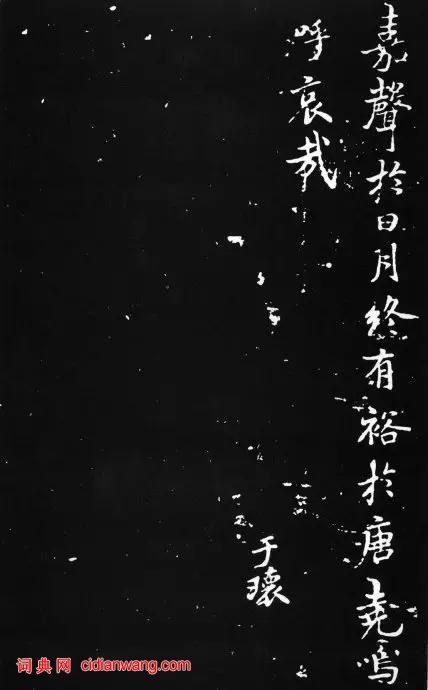 嘉聲於日月終有裕於唐堯嗚
呼哀哉
于瓌
词典网 cidianwang.com